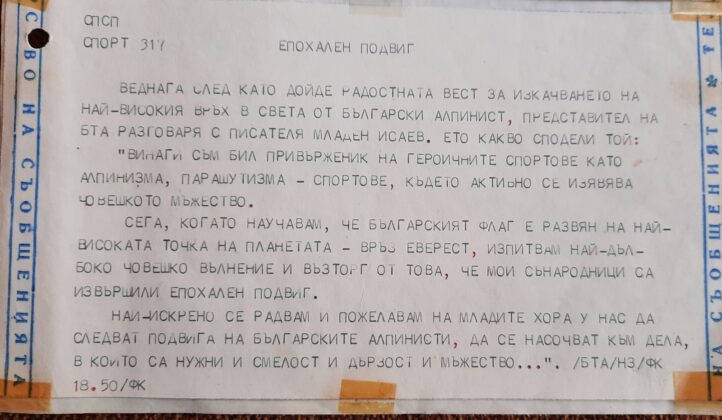 СПСП
СПОРТ 317
ЕПОХАЛЕН ПОДВИГ
ВЕДНАГА СЛЕД КАТО ДОЙДЕ РАДОСТНАТА ВЕСТ ЗА ИЗКАЧВАНЕТО НА
НАЙ-ВИСОКИЯ ВРЪХ В СВЕТА ОТ БЪЛГАРСКИ АЛПИНИСТ, ПРЕДСТАВИТЕЛ НА
БТА РАЗГОВАРЯ С ПИСАТЕЛЯ МЛАДЕН ИСАЕВ. ЕТО КАКВО СПОДЕЛИ ТОЙ:
"ВИНАГИ СЪМ БИЛ ПРИВЪРЖЕНИК НА ГЕРОИЧНИТЕ СПОРТОВЕ КАТО
АЛПИНИЗМА, ПАРАШУТИЗМА - СПОРТОВЕ, КЪДЕТО АКТИВНО СЕ ИЗЯВЯВА
ЧОВЕШКОТО МЪЖЕСТВО.
СЕГА, КОГАТО НАУЧАВАМ, ЧЕ БЪЛГАРСКИЯТ ФЛАГ Е РАЗВЯН НА НАЙ-
ВИСОКАТА ТОЧКА НА ПЛАНЕТАТА - ВРЪЗ ЕВЕРЕСТ, ИЗПИТВАМ НАЙ-ДЪЛ-
БОКО ЧОВЕШКО ВЪЛНЕНИЕ И ВЪЗТОРГ ОТ ТОВА, ЧЕ МОИ СЪНАРОДНИЦИ СА
ИЗВЪРШИЛИ ЕПОХАЛЕН ПОДВИГ.
НАЙ-ИСКРЕНО СЕ РАДВАМ И ПОЖЕЛАВАМ НА МЛАДИТЕ ХОРА У НАС ДА
СЛЕДВАТ ПОДВИГА НА БЪЛГАРСКИТЕ АЛПИНИСТИ, ДА СЕ НАСОЧВАТ КЪМ ДЕЛА,
В КОИТО СА НУЖНИ И СМЕЛОСТ И ДЪРЗОСТ И МЪЖЕСТВО...". /БТА/НЗ/ФК
18.50/ФК
СТВО НА СЪОБЩЕНИЯТА
НА СЪОБЩЕНИЯТА ★ ТЕ